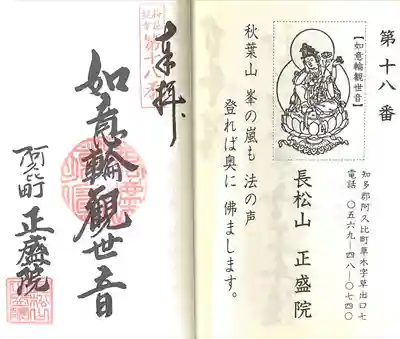 第十八番
【如意輪観世音】
知多郡阿久比町草木字草出口七
電話 〇五六九―四八―〇七四〇
長松山 正盛院
秋葉山 峯の嵐も 法の声
登れば奥に 佛まします。
奉拝
第十八番
如意輪觀世音
阿久比町 正盛院